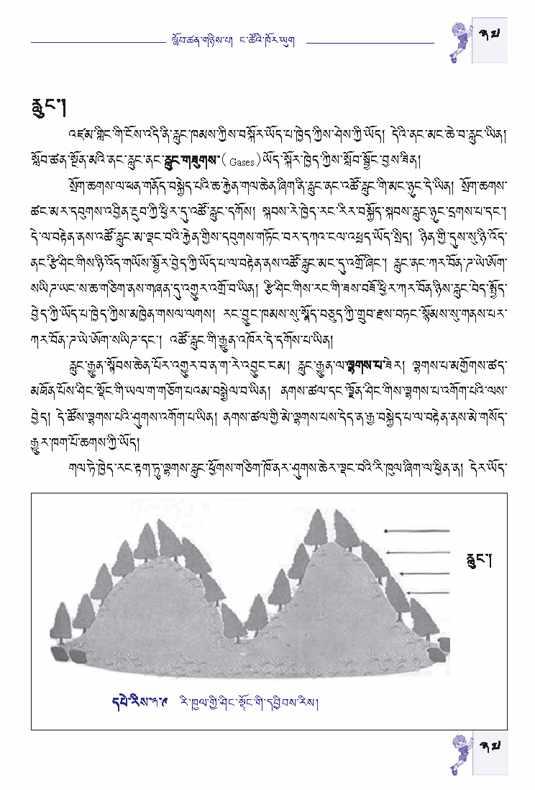 སློབ་ཚན་གཉིས་པ། ང་ཚོའི་ཁོར་ཡུག
༢༥
རླུང་།
འཛམ་གླིང་གི་ངོས་འདི་ནི་རླུང་ཁམས་ཀྱིས་བསྐོར་ཡོད་པ་ཁྱེད་ཀྱིས་ཤེས་ཀྱི་ཡོད། དེའི་ནང་མང་ཆེ་བ་རླུང་ཡིན།
སློབ་ཚན་སྔོན་མའི་ནང་རླུང་ནང་རླུང་གཟུགས་( Gases )ཡོད་སྐོར་ཁྱེད་ཀྱིས་སློབ་སྦྱོང་བྱས་ཟིན།
སྲོག་ཆགས་ལ་ཕན་གནོད་བསྐྱེད་པའི་ཆ་རྐྱེན་གལ་ཆེན་ཞིག་ནི་རླུང་ནང་འཚོ་རླུང་གི་མང་ཉུང་དེ་ཡིན། སྲོག་ཆགས་
ཚང་མར་དབུགས་འབྱིན་རྔུབ་ཀྱི་ཕྱིར་དུ་འཚོ་རླུང་དགོས། སྐབས་རེ་ཁྱེད་རང་རིར་བསྐྱོད་སྐབས་རླུང་ཉུང་དྲགས་པ་དང་།
དེ་ལ་བརྟེན་ནས་འཚོ་རླུང་མ་ལྡང་བའི་རྐྱེན་གྱིས་དབུགས་གཏོང་བར་དཀའ་ངལ་འཕྲད་ཡོད་སྲིད། ཉིན་གྱི་དུས་སུ་ཉི་འོད་
ནང་རྩི་ཤིང་གིས་ཉི་འོད་གཡོས་སྦྱོར་བྱེད་ཀྱི་ཡོད་པ་ལ་བརྟེན་ནས་འཚོ་རླུང་མང་དུ་འགྲོ་ཞིང་། རླུང་ནང་ཀར་བོན་ཌ་ཡེ་ཨོག་
སཡིཌ་ཡང་ས་ཆ་གཅིག་ནས་གཞན་དུ་འགྱུར་འགྲོ་བ་ཡིན། རྩི་ཤིང་གིས་རང་གི་ཟས་བཟོ་ཕྱིར་ཀར་བོན་ཉིས་རླུང་བེད་སྤྱོད་
བྱེད་ཀྱི་ཡོད་པ་ཁྱེད་ཀྱིས་མཁྱེན་གསལ་ལགས། རང་བྱུང་ཁམས་སུ་སྣོད་བཅུད་ཀྱི་གྲུབ་རྫས་བཏང་སྙོམས་སུ་གནས་པར་
ཀར་བོན་ཌ་ཡེ་ཨོག་སཡིཌ་དང་། འཚོ་རླུང་གི་རྒྱུན་འཁོར་དེ་དགོས་པ་ཡིན།
རླུང་རྒྱུན་སྟོབས་ཆེན་པོར་འགྱུར་བ་ན་ག་རེ་འབྱུང་ངམ། རླུང་རྒྱུན་ལ་ལྷགས་པ་ཟེར། ལྷགས་པ་མགྱོགས་ཚད་
མཐོན་པོས་ཤིང་སྡོང་གི་ཡལ་ག་གཅོག་པའམ་བསྒྱེལ་བ་ཡིན། ནགས་ཚལ་དང་ལྗོན་ཤིང་གིས་ལྷགས་པ་འགོག་པའི་ལས་
བྱེད། དེ་ཚོས་ལྷགས་པའི་ཤུགས་འགོག་པ་ཡིན། ནགས་ཚལ་གྱི་མེ་ལྷགས་པས་དེད་ན་རྒྱ་བསྐྱེད་པ་ལ་བརྟེན་ནས་མེ་གསོད་
རྒྱུར་ཁག་པོ་ཆགས་ཀྱི་ཡོད།
གལ་ཏེ་ཁྱེད་རང་རྟག་ཏུ་ལྷགས་རླུང་ཕྱོགས་གཅིག་ཁོ་ནར་ཤུགས་ཆེར་ལྡང་བའི་རི་ཁུལ་ཞིག་ལ་ཕྱིན་ན། དེར་ཡོད་
རླུང་།
དཔེ་རིས་༢.༩ རི་ཁུལ་གྱི་ཤིང་སྡོང་གི་དབྱིབས་རིས།
༢༥